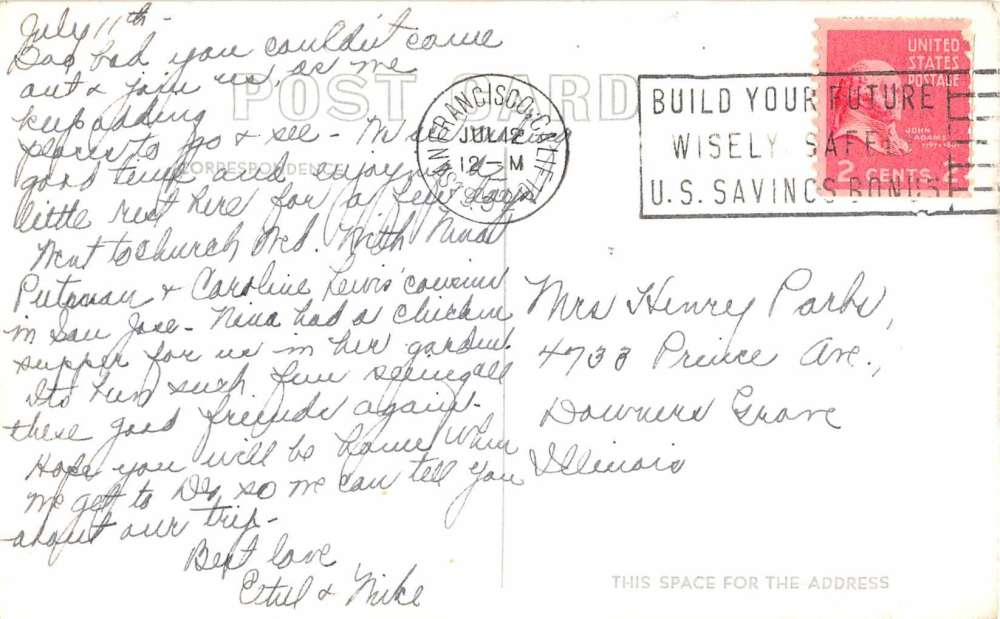 July 11th -
Too bad you couldn't come
out & join us, as we
keep adding
places to go & see - M
good time and enjoying
little rest here for a few days
Went to church Wed. With Nina
Putnam & Caroline Lewis' cousin
in San Jose - Nina had a chicken
supper for us in her garden.
It's been such fun seeing all
these good friends again.
Hope you will be home when
we get to DG, so we can tell you
about our trip -
Best love,
Ethel & Mike
POST CARD
CORRESPONDENCE
SAN FRANCISCO, CALIF.
JUL 12
12 - M
BUILD YOUR FUTURE
WISELY SAFELY
U.S. SAVINGS BONDS
UNITED
STATES
POSTAGE
JOHN
ADAMS
2 CENTS 2
Mrs Henry Parbs,
4733 Prince Ave.,
Downers Grove
Illinois
THIS SPACE FOR THE ADDRESS